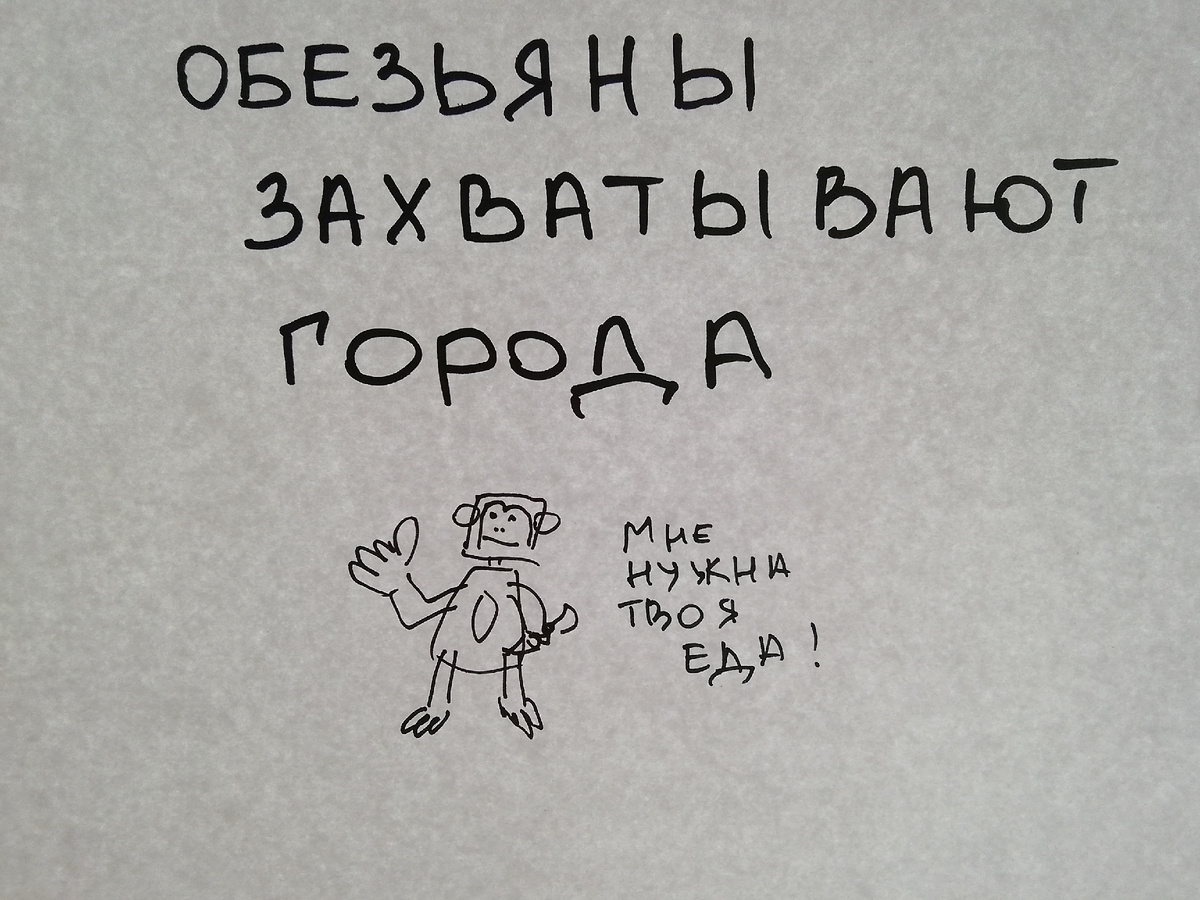 ОБЕЗЬЯНЫ
ЗАХВАТЫВАЮТ
ГОРОДА
МНЕ
НУЖНА
ТВОЯ
ЕДА!